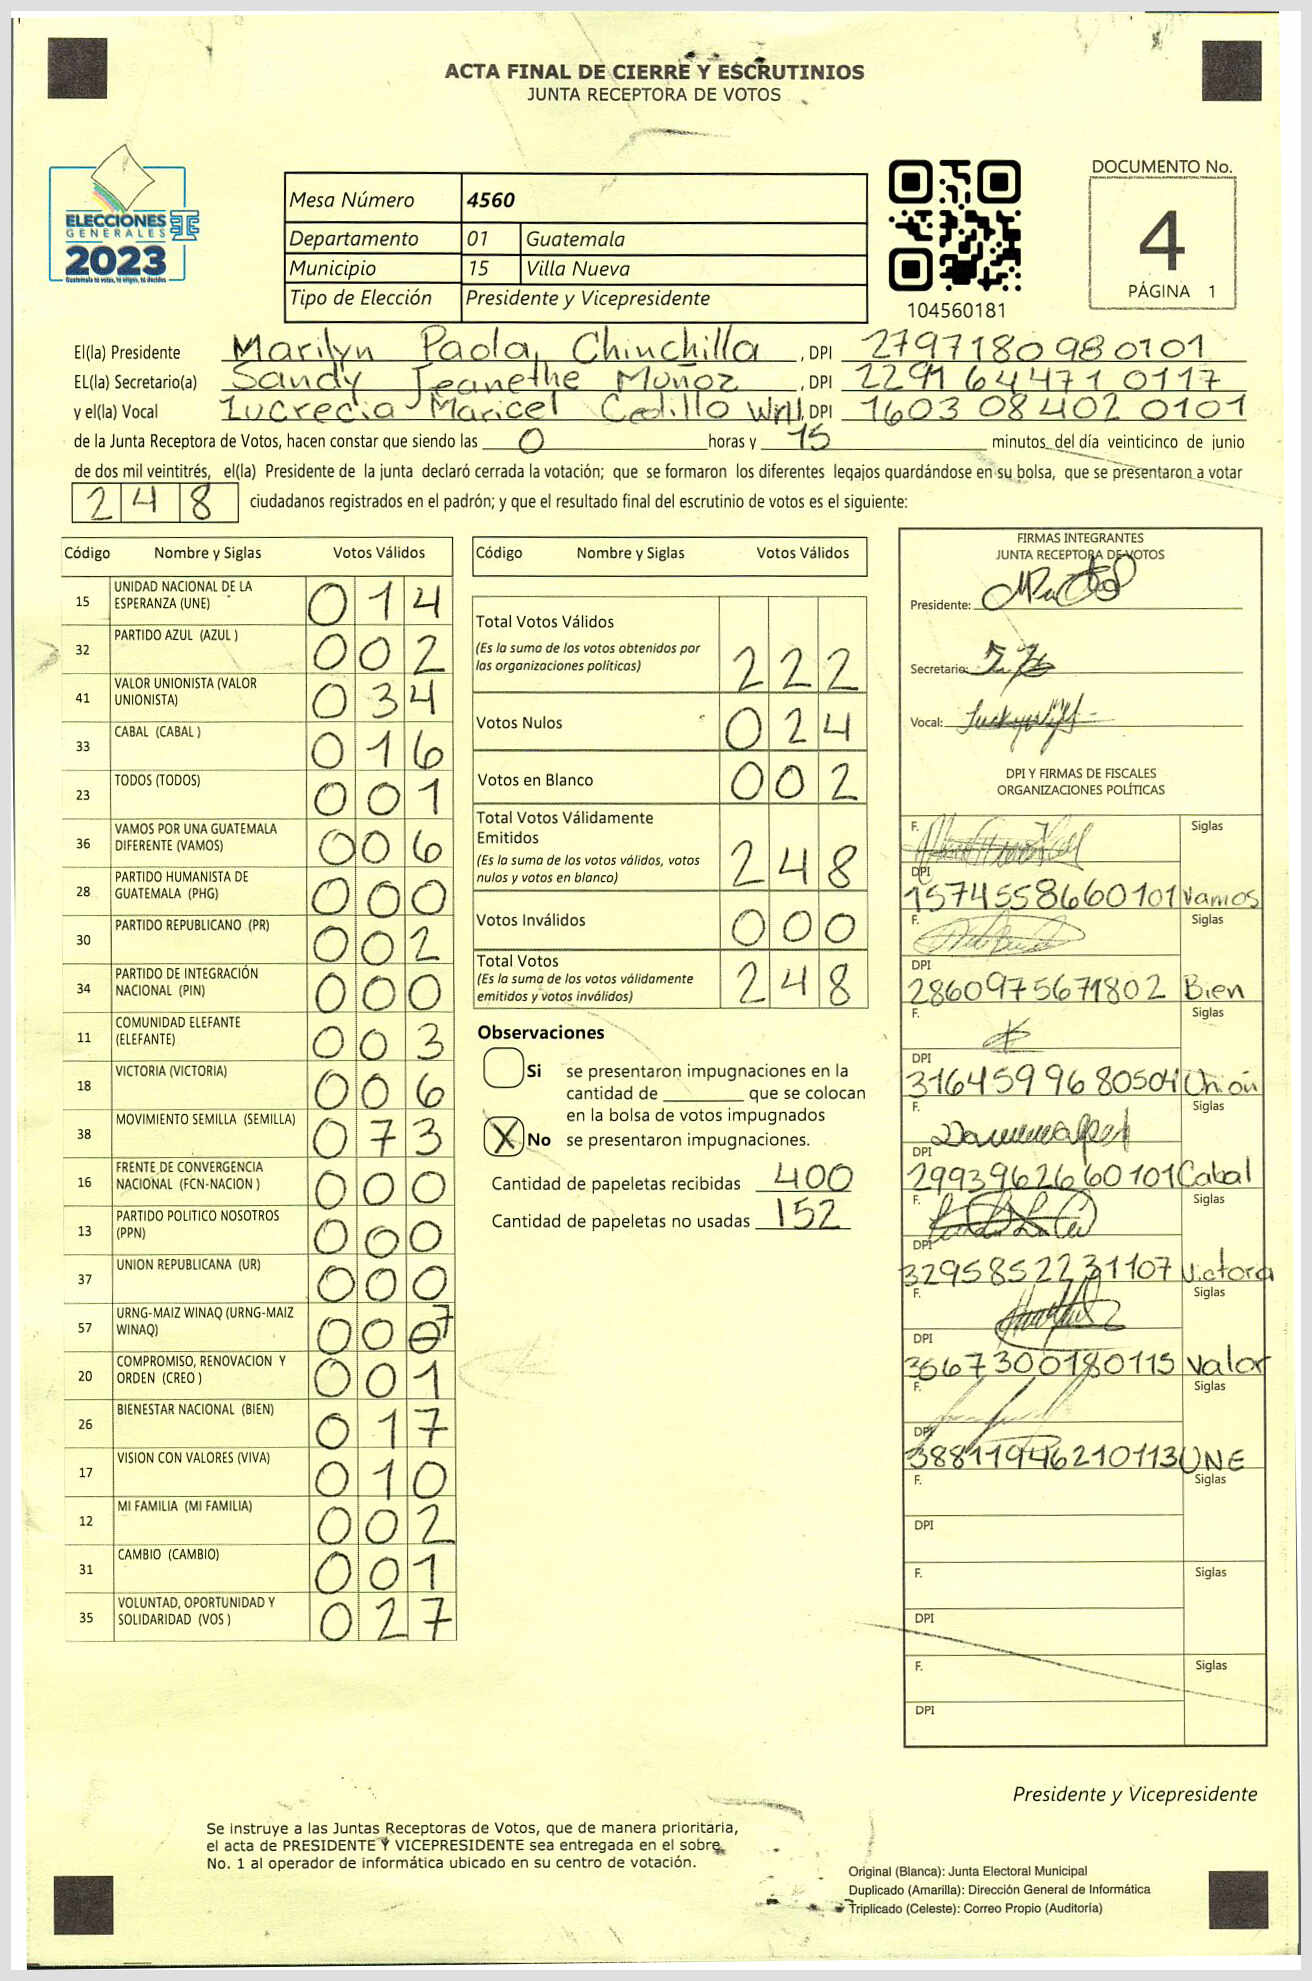 ACTA FINAL DE CIERRE Y ESCRUTINIOS
JUNTA RECEPTORA DE VOTOS
ELECCIONES
GENERALES
2023
Guatemala tú votas, tú eliges, tú decides
Mesa Número 4560
Departamento 01 Guatemala
Municipio 15 Villa Nueva
Tipo de Elección Presidente y Vicepresidente
104560181
DOCUMENTO No.
4
PÁGINA 1
El(la) Presidente Marilyn Paola Chinchilla , DPI 2797180980101
EL(la) Secretario(a) Sandy Jeanethe Muñoz , DPI 2291644710117
y el(la) Vocal Lucrecia Maricel Cedillo , DPI 1603084020101
de la Junta Receptora de Votos, hacen constar que siendo las 0 horas y 15 minutos del día veinticinco de junio
de dos mil veintitrés, el(la) Presidente de la junta declaró cerrada la votación; que se formaron los diferentes legajos guardándose en su bolsa, que se presentaron a votar
248 ciudadanos registrados en el padrón; y que el resultado final del escrutinio de votos es el siguiente:
Código Nombre y Siglas Votos Válidos
15 UNIDAD NACIONAL DE LA ESPERANZA (UNE) 014
32 PARTIDO AZUL (AZUL ) 002
41 VALOR UNIONISTA (VALOR UNIONISTA) 034
33 CABAL (CABAL ) 016
23 TODOS (TODOS) 001
36 VAMOS POR UNA GUATEMALA DIFERENTE (VAMOS) 006
28 PARTIDO HUMANISTA DE GUATEMALA (PHG) 000
30 PARTIDO REPUBLICANO (PR) 002
34 PARTIDO DE INTEGRACIÓN NACIONAL (PIN) 000
11 COMUNIDAD ELEFANTE (ELEFANTE) 003
18 VICTORIA (VICTORIA) 006
38 MOVIMIENTO SEMILLA (SEMILLA) 073
16 FRENTE DE CONVERGENCIA NACIONAL (FCN-NACION ) 000
13 PARTIDO POLITICO NOSOTROS (PPN) 000
37 UNION REPUBLICANA (UR) 000
57 URNG-MAIZ WINAQ (URNG-MAIZ WINAQ) 007
20 COMPROMISO, RENOVACION Y ORDEN (CREO ) 001
26 BIENESTAR NACIONAL (BIEN) 017
17 VISION CON VALORES (VIVA) 010
12 MI FAMILIA (MI FAMILIA) 002
31 CAMBIO (CAMBIO) 001
35 VOLUNTAD, OPORTUNIDAD Y SOLIDARIDAD (VOS ) 027
Código Nombre y Siglas Votos Válidos
Total Votos Válidos
(Es la suma de los votos obtenidos por
las organizaciones políticas) 222
Votos Nulos 024
Votos en Blanco 002
Total Votos Válidamente
Emitidos
(Es la suma de los votos válidos, votos
nulos y votos en blanco) 248
Votos Inválidos 000
Total Votos
(Es la suma de los votos válidamente
emitidos y votos inválidos) 248
Observaciones
Si se presentaron impugnaciones en la
cantidad de ________ que se colocan
en la bolsa de votos impugnados
X No se presentaron impugnaciones.
Cantidad de papeletas recibidas 400
Cantidad de papeletas no usadas 152
FIRMAS INTEGRANTES
JUNTA RECEPTORA DE VOTOS
Presidente:
Secretario:
Vocal:
DPI Y FIRMAS DE FISCALES
ORGANIZACIONES POLÍTICAS
F. Siglas
DPI
1574558660101 Vamos
F. Siglas
DPI
2860975671802 Bien
F. Siglas
DPI
3164599680504 Unión
F. Siglas
DPI
2993962660101 Cabal
F. Siglas
DPI
3295852231107 Victoria
F. Siglas
DPI
3667300180115 Valor
F. Siglas
DPI
3881194621 0113 UNE
F. Siglas
DPI
F. Siglas
DPI
F. Siglas
DPI
Presidente y Vicepresidente
Se instruye a las Juntas Receptoras de Votos, que de manera prioritaria,
el acta de PRESIDENTE Y VICEPRESIDENTE sea entregada en el sobre
No. 1 al operador de informática ubicado en su centro de votación.
Original (Blanca): Junta Electoral Municipal
Duplicado (Amarilla): Dirección General de Informática
Triplicado (Celeste): Correo Propio (Auditoría)